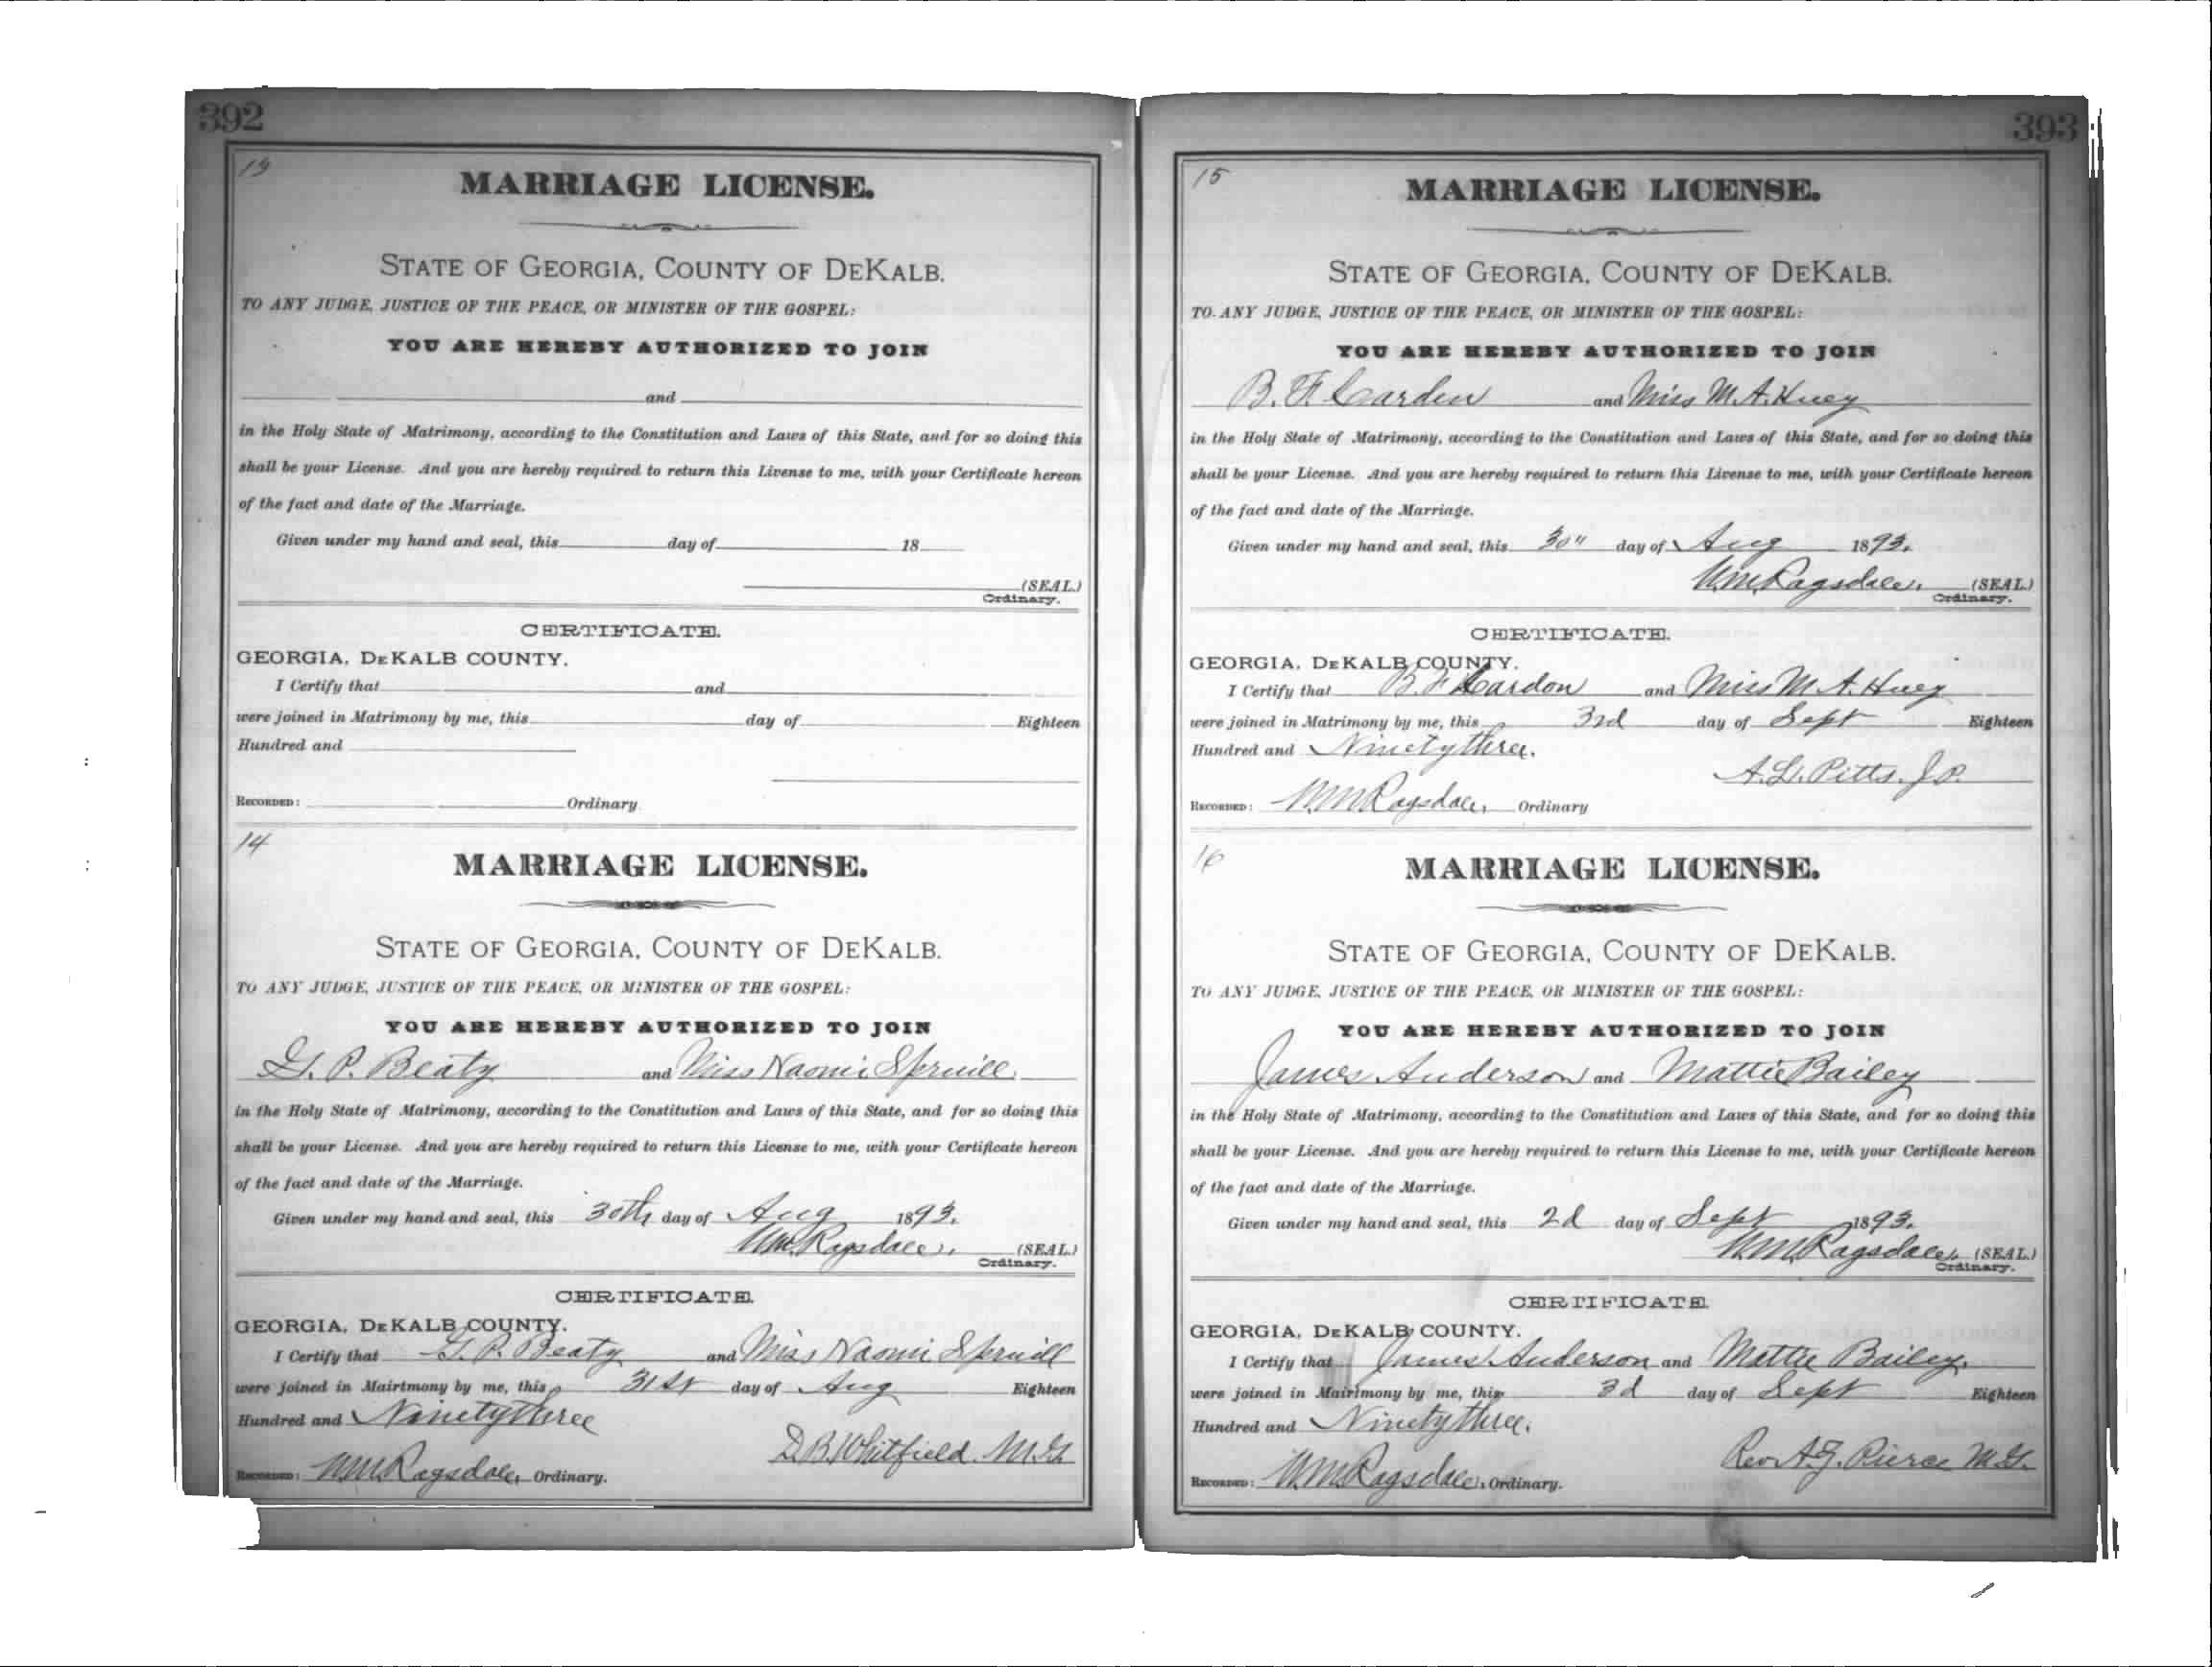 392
13
MARRIAGE LICENSE.
STATE OF GEORGIA, COUNTY OF DEKALB.
TO ANY JUDGE, JUSTICE OF THE PEACE, OR MINISTER OF THE GOSPEL:
YOU ARE HEREBY AUTHORIZED TO JOIN
and
in the Holy State of Matrimony, according to the Constitution and Laws of this State, and for so doing this
shall be your License. And you are hereby required to return this License to me, with your Certificate hereon
of the fact and date of the Marriage.
Given under my hand and seal, this day of 18
(SEAL)
Ordinary.
CERTIFICATE.
GEORGIA, DEKALB COUNTY.
I Certify that and
were joined in Matrimony by me, this day of Eighteen
Hundred and
RECORDED: Ordinary
14
MARRIAGE LICENSE.
STATE OF GEORGIA, COUNTY OF DEKALB.
TO ANY JUDGE, JUSTICE OF THE PEACE, OR MINISTER OF THE GOSPEL:
YOU ARE HEREBY AUTHORIZED TO JOIN
G. P. Beaty and Miss Naomi Spruill
in the Holy State of Matrimony, according to the Constitution and Laws of this State, and for so doing this
shall be your License. And you are hereby required to return this License to me, with your Certificate hereon
of the fact and date of the Marriage.
Given under my hand and seal, this 30th day of Aug 1893.
W.M. Ragsdale, (SEAL)
Ordinary.
CERTIFICATE.
GEORGIA, DEKALB COUNTY.
I Certify that G. P. Beaty and Miss Naomi Spruill
were joined in Mairtmony by me, this 31st day of Aug Eighteen
Hundred and Ninety three
D. B. Whitfield. M.G.
RECORDED: W.M. Ragsdale, Ordinary.
393
15
MARRIAGE LICENSE.
STATE OF GEORGIA, COUNTY OF DEKALB.
TO ANY JUDGE, JUSTICE OF THE PEACE, OR MINISTER OF THE GOSPEL:
YOU ARE HEREBY AUTHORIZED TO JOIN
B. F. Carden and Miss M. A. Huey
in the Holy State of Matrimony, according to the Constitution and Laws of this State, and for so doing this
shall be your License. And you are hereby required to return this License to me, with your Certificate hereon
of the fact and date of the Marriage.
Given under my hand and seal, this 30" day of Aug 1893.
W.M. Ragsdale, (SEAL)
Ordinary.
CERTIFICATE.
GEORGIA, DEKALB COUNTY.
I Certify that B. F. Cardon and Miss M. A. Huey
were joined in Matrimony by me, this 3rd day of Sept Eighteen
Hundred and Ninety three.
A. L. Pitts. J P.
RECORDED: W.M. Ragsdale, Ordinary
16
MARRIAGE LICENSE.
STATE OF GEORGIA, COUNTY OF DEKALB.
TO ANY JUDGE, JUSTICE OF THE PEACE, OR MINISTER OF THE GOSPEL:
YOU ARE HEREBY AUTHORIZED TO JOIN
James Anderson and Mattie Bailey
in the Holy State of Matrimony, according to the Constitution and Laws of this State, and for so doing this
shall be your License. And you are hereby required to return this License to me, with your Certificate hereon
of the fact and date of the Marriage.
Given under my hand and seal, this 2d day of Sept 1893.
W.M. Ragsdale, (SEAL)
Ordinary.
CERTIFICATE.
GEORGIA, DEKALB COUNTY.
I Certify that James Anderson and Mattie Bailey.
were joined in Mairtmony by me, this 3d day of Sept Eighteen
Hundred and Ninety three.
Rev A. J. Pierce M.G.
RECORDED: W.M. Ragsdale, Ordinary.